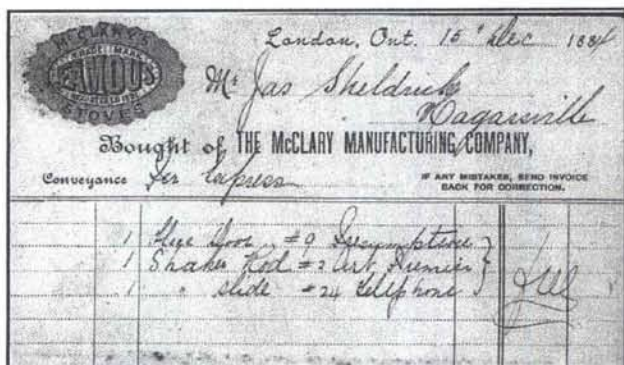 McCLARY'S
TRADE MARK
FAMOUS
STOVES
London, Ont. 15th Dec 1884
Mr Jas Sheldrick
Hagarsville
Bought of THE McCLARY MANUFACTURING COMPANY,
Conveyance Per Express
IF ANY MISTAKES, SEND INVOICE
BACK FOR CORRECTION.
1 Flue Door #9
1 Shaker Rod #2 Art Premier
1 " slide #24 Telephone